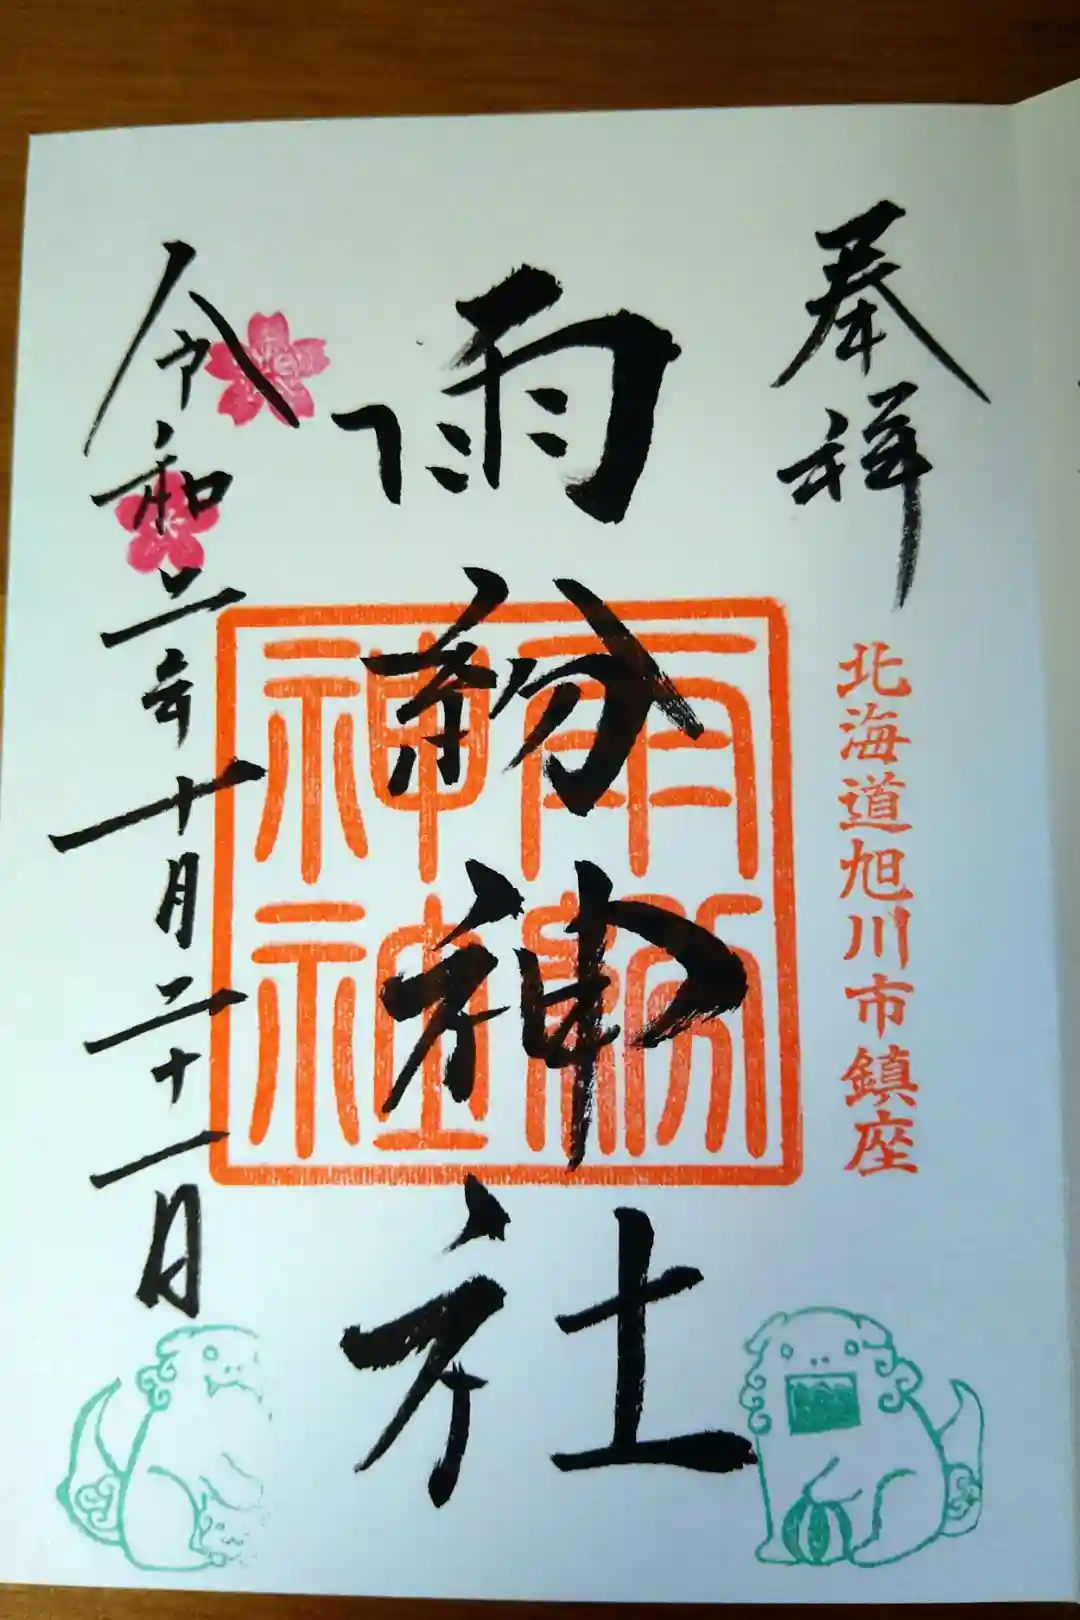 奉拝
北海道旭川市鎮座
雨紛神社
雨紛
神社
令和二年十月二十一日